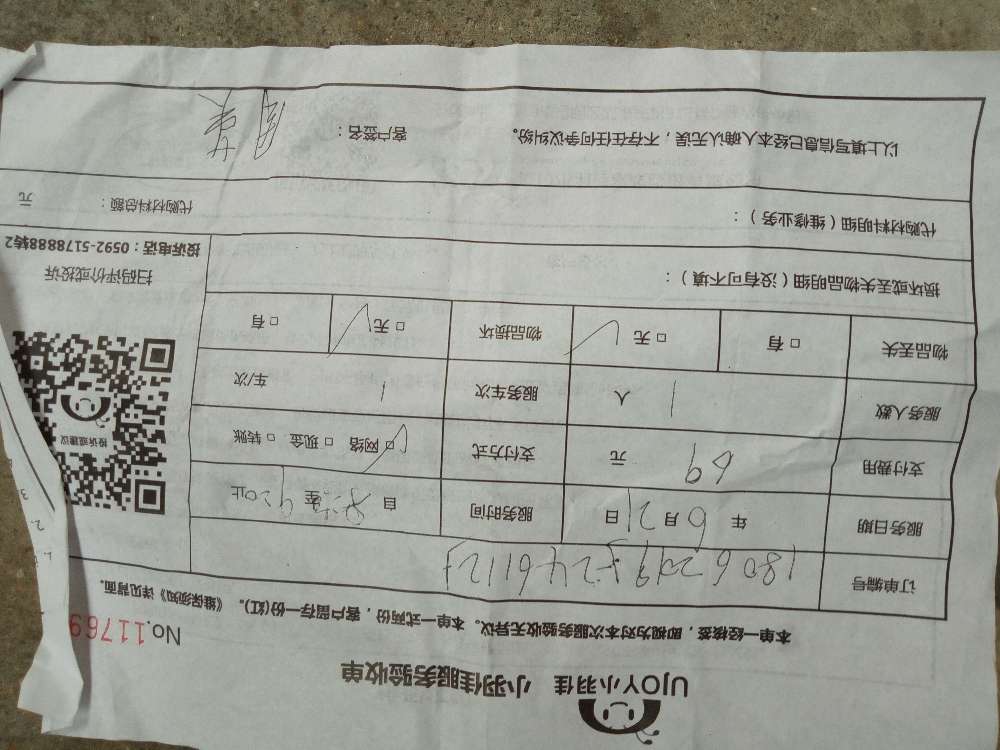 UJOY小羽佳 小羽佳服务验收单
No.11769
本单一经核签，即视为对本次服务验收无异议。本单一式两份，客户留存一份(红)。《维保须知》详见背面。
订单编号
服务日期 年 6 月 21 日 服务时间 自 至 920止
支付费用 69 元 支付方式 □ 网络 □ 现金 □ 转账
服务人数 1 人 服务车次 1 车/次
物品丢失 □ 有 □ 无 物品损坏 □ 无 □ 有
投诉或建议
扫码评价或投诉
投诉电话：0592-5178888转2
损坏或丢失物品明细（没有可不填）：
代购材料明细（维修业务）： 代购材料总额： 元
以上填写信息已经本人确认无误，不存在任何争议纠纷。 客户签名：